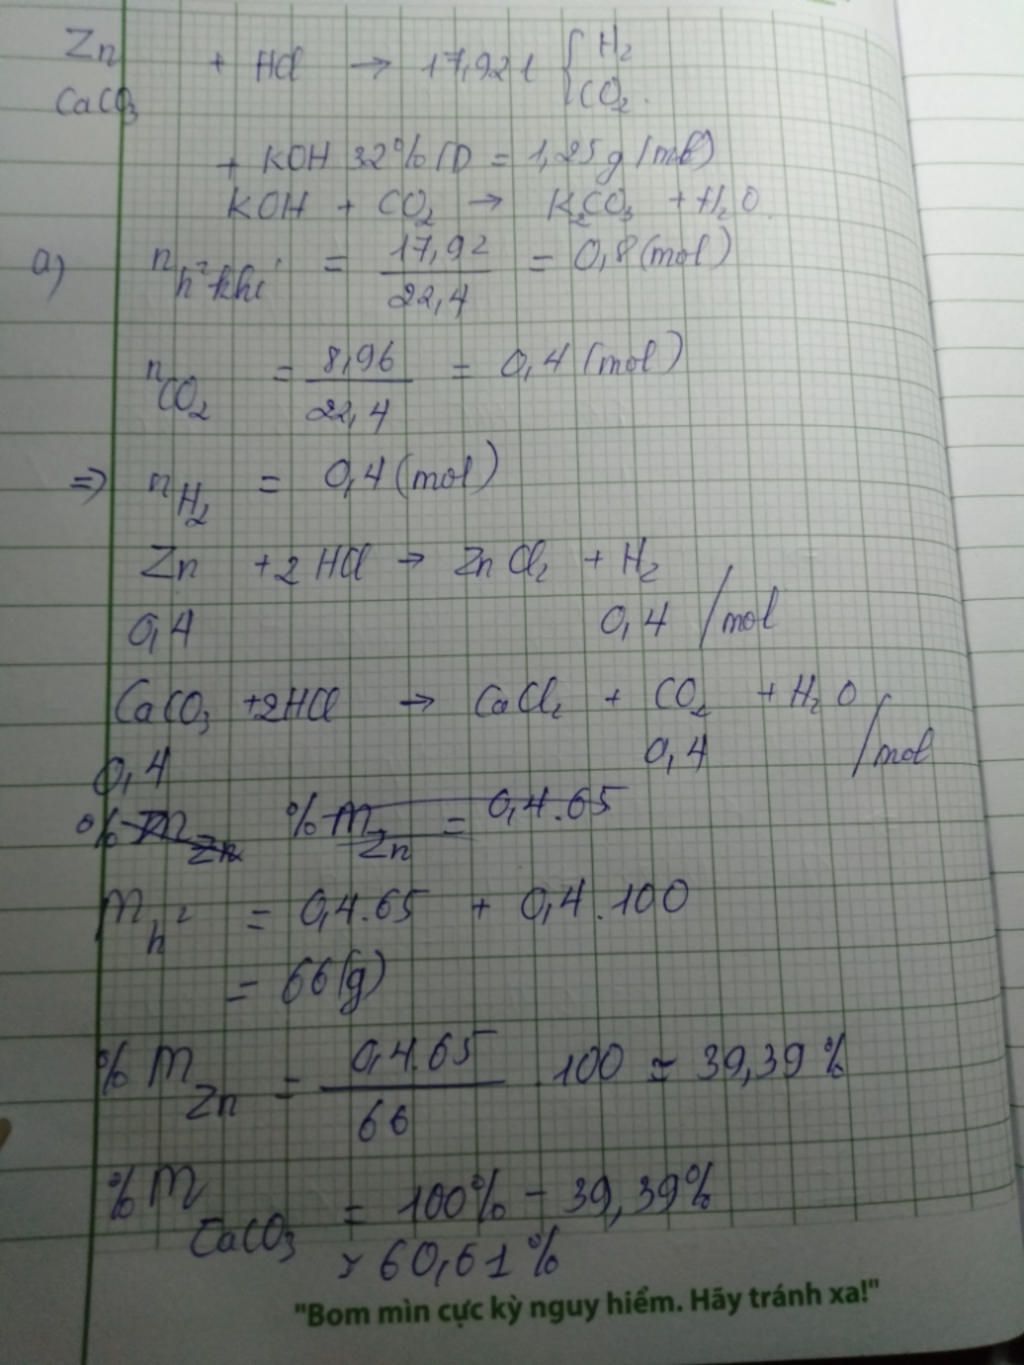 Zn
CaCO₃ + HCl → 17,92 l { H₂
CO₂.
+ KOH 32% (D = 1,25 g/ml)
KOH + CO₂ → K₂CO₃ + H₂O.
a) n h² khí = 17,92 / 22,4 = 0,8 (mol)
n CO₂ = 8,96 / 22,4 = 0,4 (mol)
=> n H₂ = 0,4 (mol)
Zn + 2HCl → ZnCl₂ + H₂
0,4 0,4 /mol
CaCO₃ + 2HCl → CaCl₂ + CO₂ + H₂O
0,4 0,4 /mol
% m Zn % m Zn = 0,4.65
m h² = 0,4.65 + 0,4.100
= 66 (g)
% m Zn = 0,4.65 / 66 .100 = 39,39%
% m CaCO₃ = 100% - 39,39%
= 60,61%
"Bom mìn cực kỳ nguy hiểm. Hãy tránh xa!"